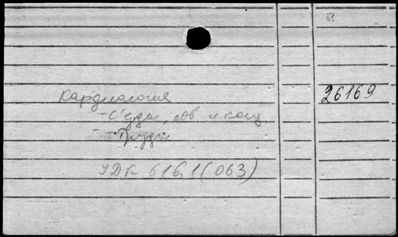 Кардиология
26169
- С'езды, сов. и конф.
- Труды
УДК 616.1(063)